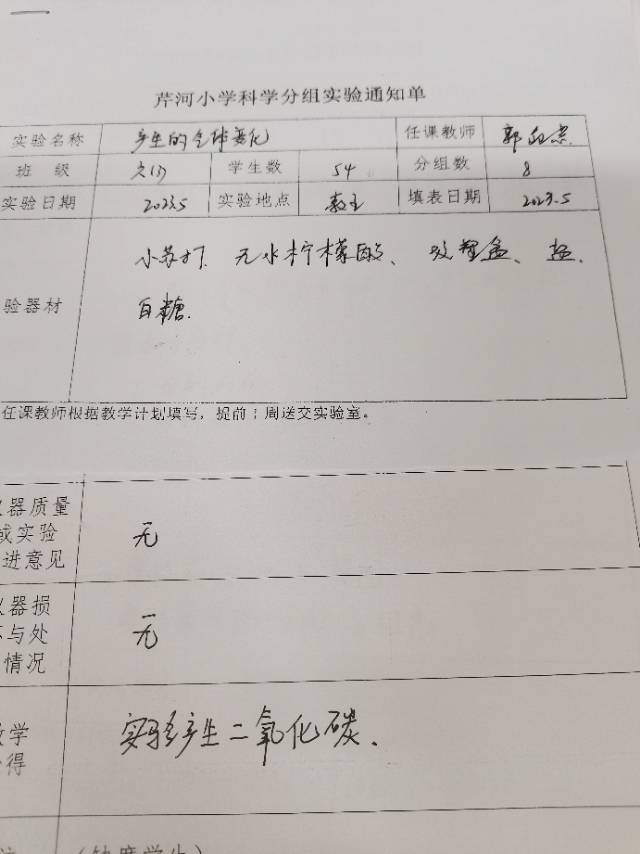 芹河小学科学分组实验通知单
实验名称 产生的气体变化 任课教师 郭
班 级 六(1) 学生数 54 分组数 8
实验日期 2023.5 实验地点 教室 填表日期 2023.5
验器材 小苏打、无水柠檬酸、玫瑰盒、盐、
白糖.
任课教师根据教学计划填写，提前1周送交实验室。
仪器质量
或实验
进意见 无
仪器损
坏与处
情况 无
教学
心得 实验产生二氧化碳.